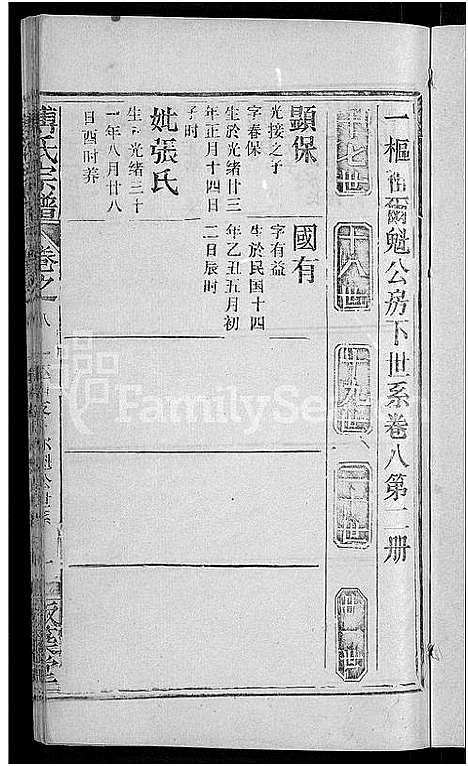 一樞祖爾魁公房下世系卷八第二册
十七世
十八世
十九世
二十世
廿一世
顯保
光接之子
字春保
生於光绪廿三
年正月十四日
子时
妣張氏
生於光绪三十
一年八月廿八
日酉时养
國有
字有益
生於民国十四
年乙丑五月初
二日辰时
傅氏宗譜
卷之八
FamilySe